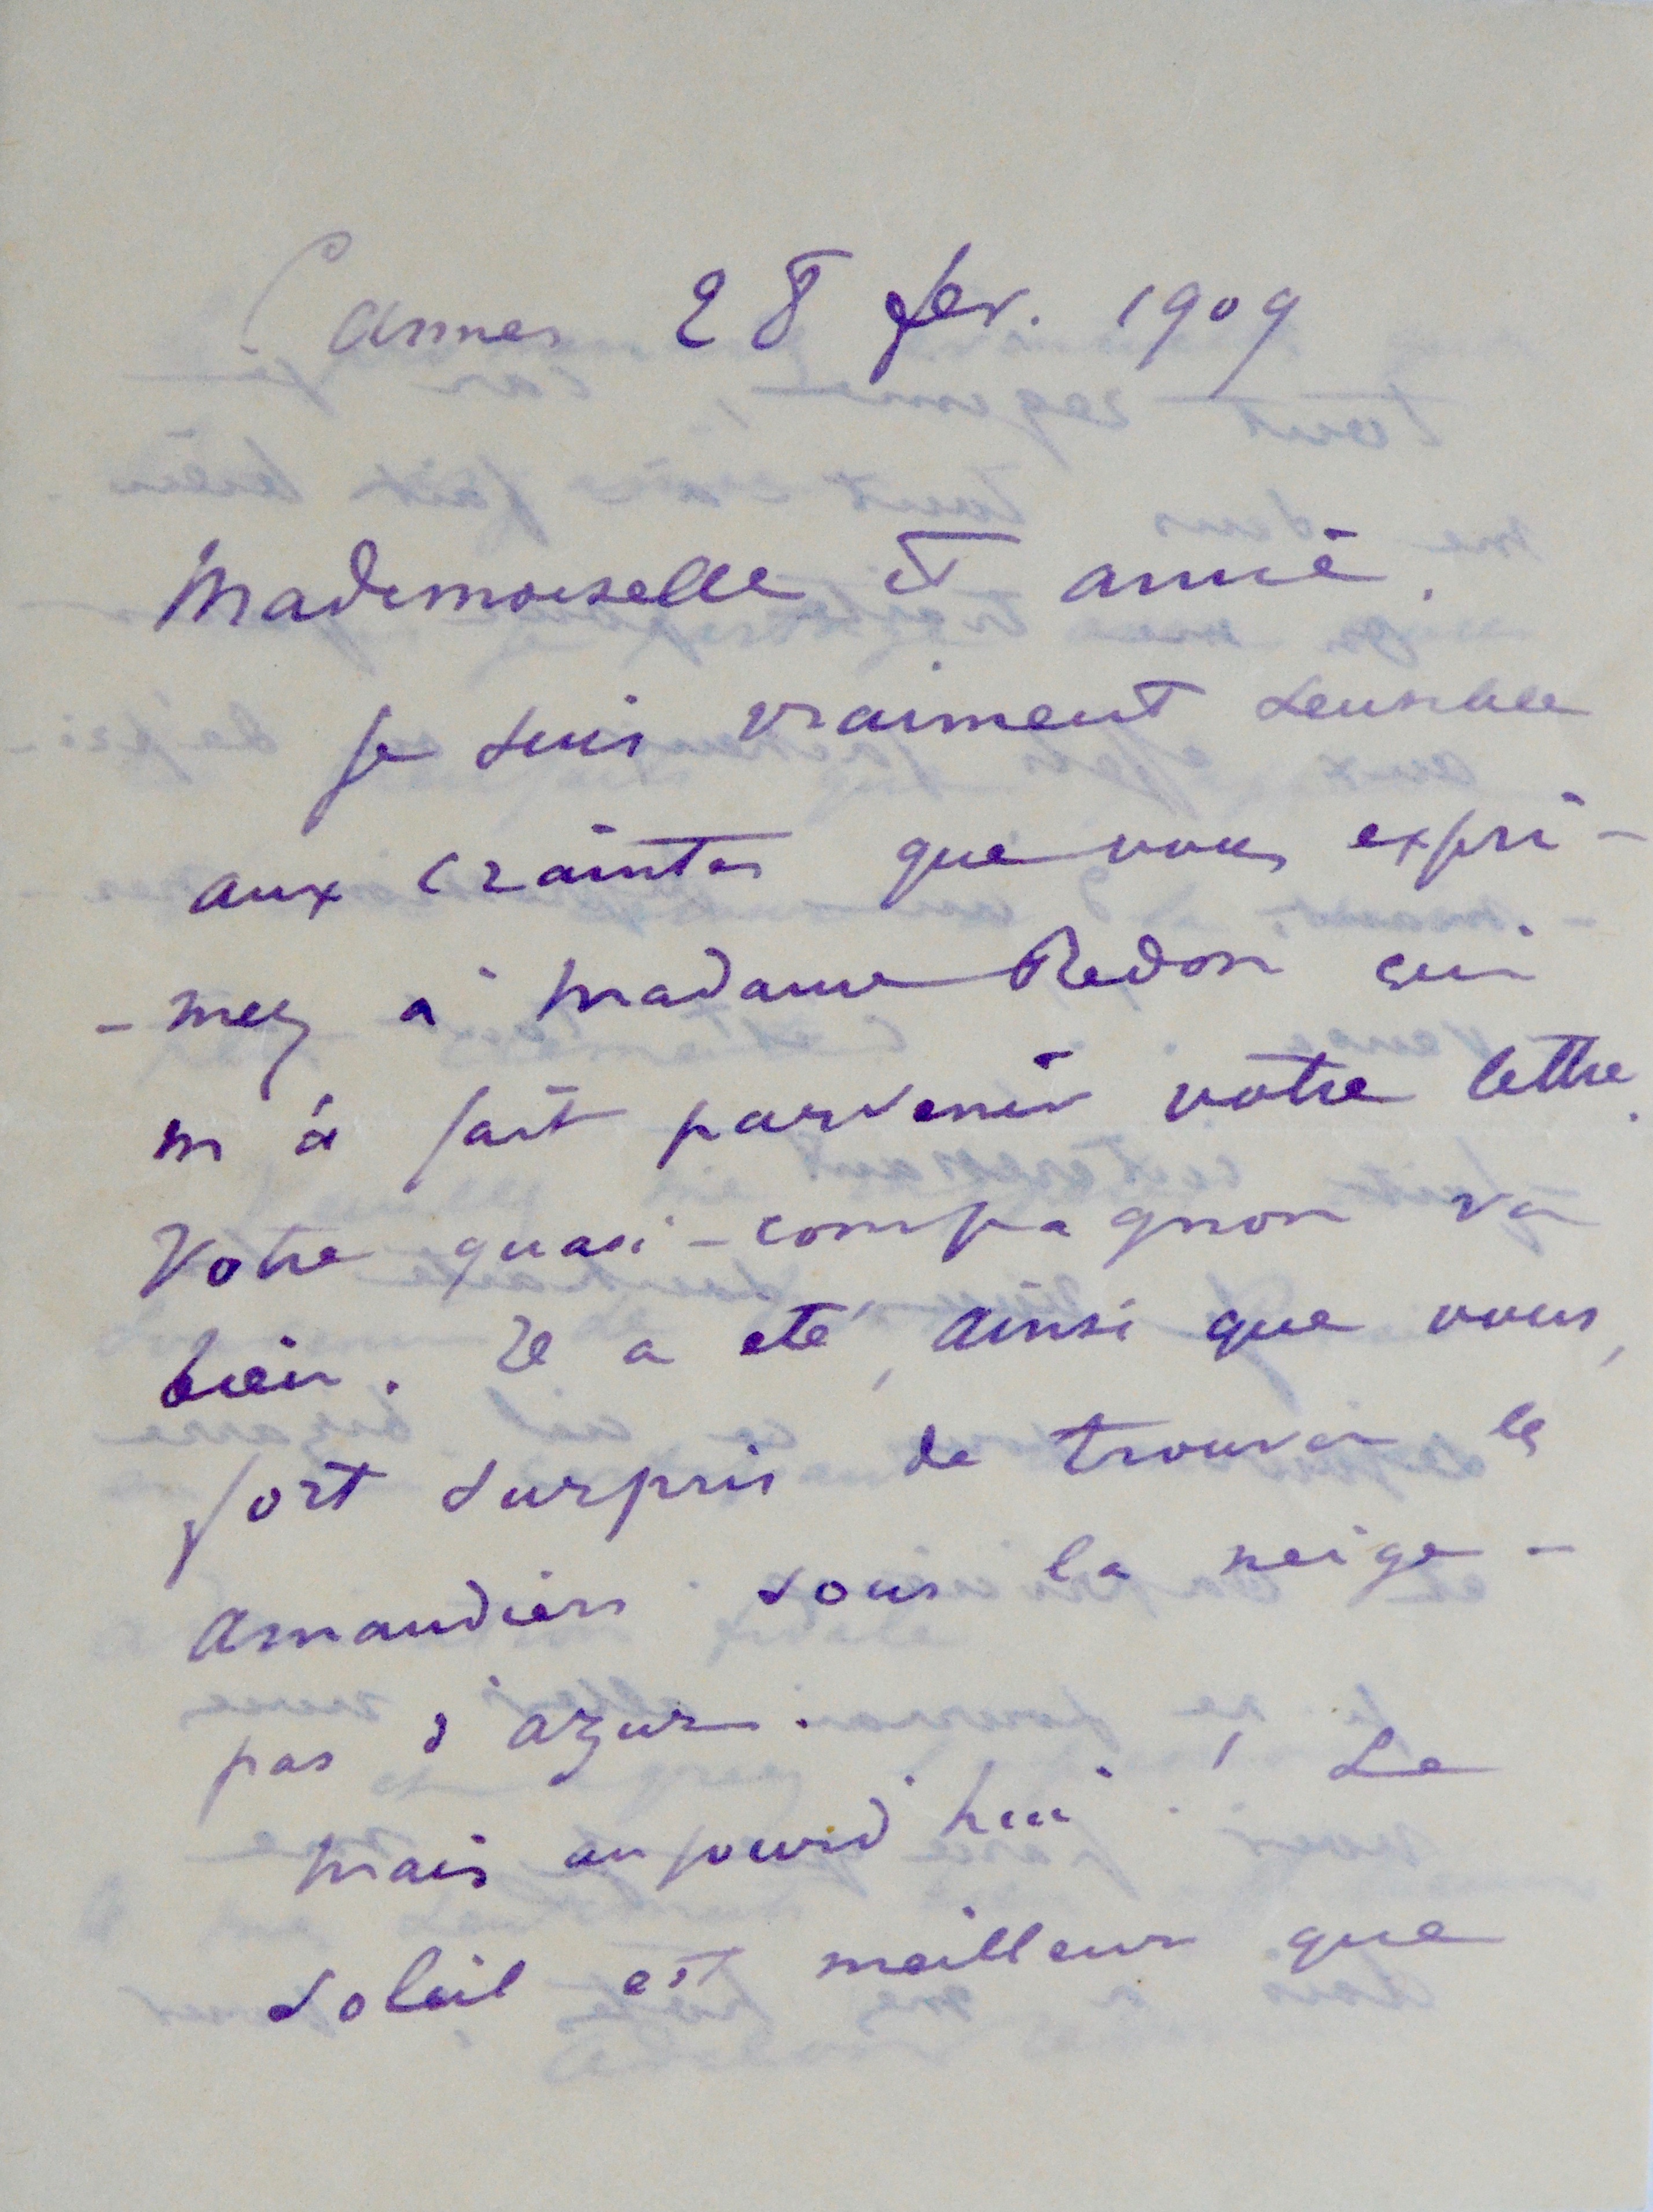 Cannes 28 fev. 1909
Mademoiselle et amie,
Je suis vraiment sensible
aux craintes que vous expri-
-mez à Madame Redon qui
m'a fait parvenir votre lettre.
Votre quasi-compagnon va
bien. Il a été, ainsi que vous,
fort surpris de trouver les
amandiers sous la neige -
pas d'azur.
Mais aujourd'hui ! Le
soleil est meilleur que